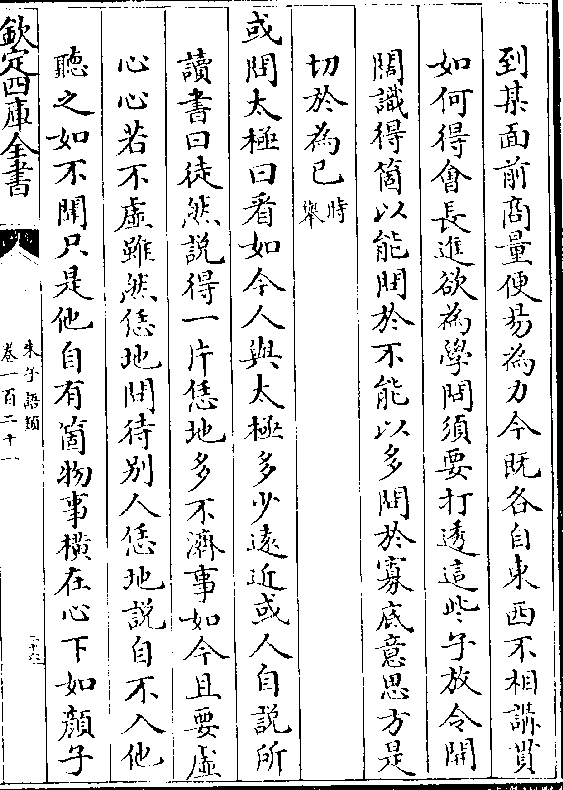 到某面前商量便易為力今既各自東西不相講貫
如何得會長進欲為學問須要打透這些子放令開
闊識得箇以能問於不能以多問於寡底意思方是
切於為己時舉
或問太極曰看如今人與太極多少遠近或人自說所
讀書曰徒然說得一片恁地多不濟事如今且要虛
心心若不虛雖然恁地問待別人恁地說自不入他
聽之如不聞只是他自有箇物事橫在心下如顏子
欽定四庫全書
朱子語類
卷一百二十一